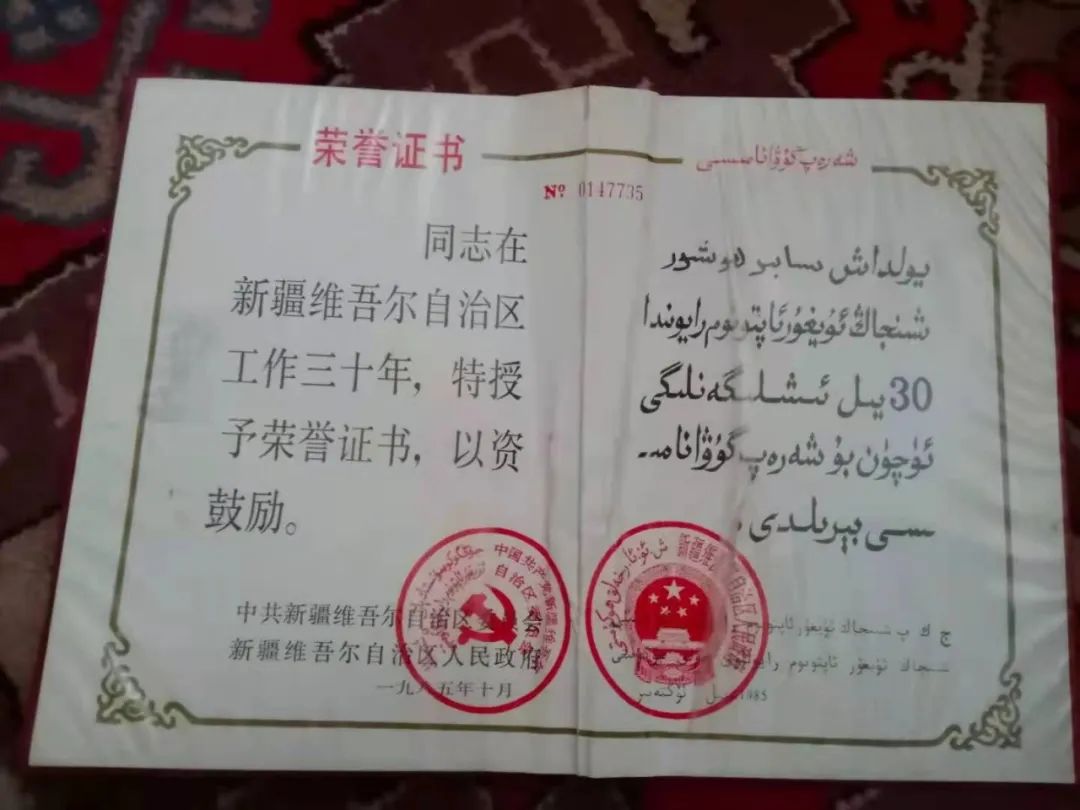 荣誉证书
شەرەپ گۇۋانامىسى
№ 0147735
同志在
新疆维吾尔自治区
工作三十年，特授
予荣誉证书，以资
鼓励。
中共新疆维吾尔自治区委员会
新疆维吾尔自治区人民政府
一九八五年十月
يولداش سابىر ھوشور
شىنجاڭ ئۇيغۇر ئاپتونوم رايوندا
30 يىل ئىشلىگەنلىگى
ئۈچۈن بۇ شەرەپ گۇۋانامـ
ـسى بېرىلدى .
ج ك پ شىنجاڭ ئۇيغۇر ئاپتونوم
شىنجاڭ ئۇيغۇر ئاپتونوم رايونلۇق
1985 يىل ئۆكتەبىر
中国共产党新疆维吾尔
自治区委员会
新疆维吾尔自治区人民政府